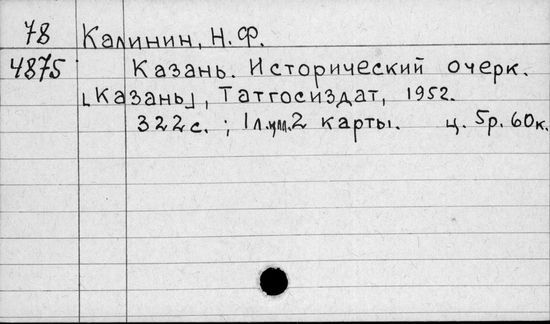 78 Калинин, Н.Ф.
4875 Казань. Исторический очерк.
[Казань], Татгосиздат, 1952.
322с. ; 1 л.илл. 2 карты. ц. 5р. 60к.